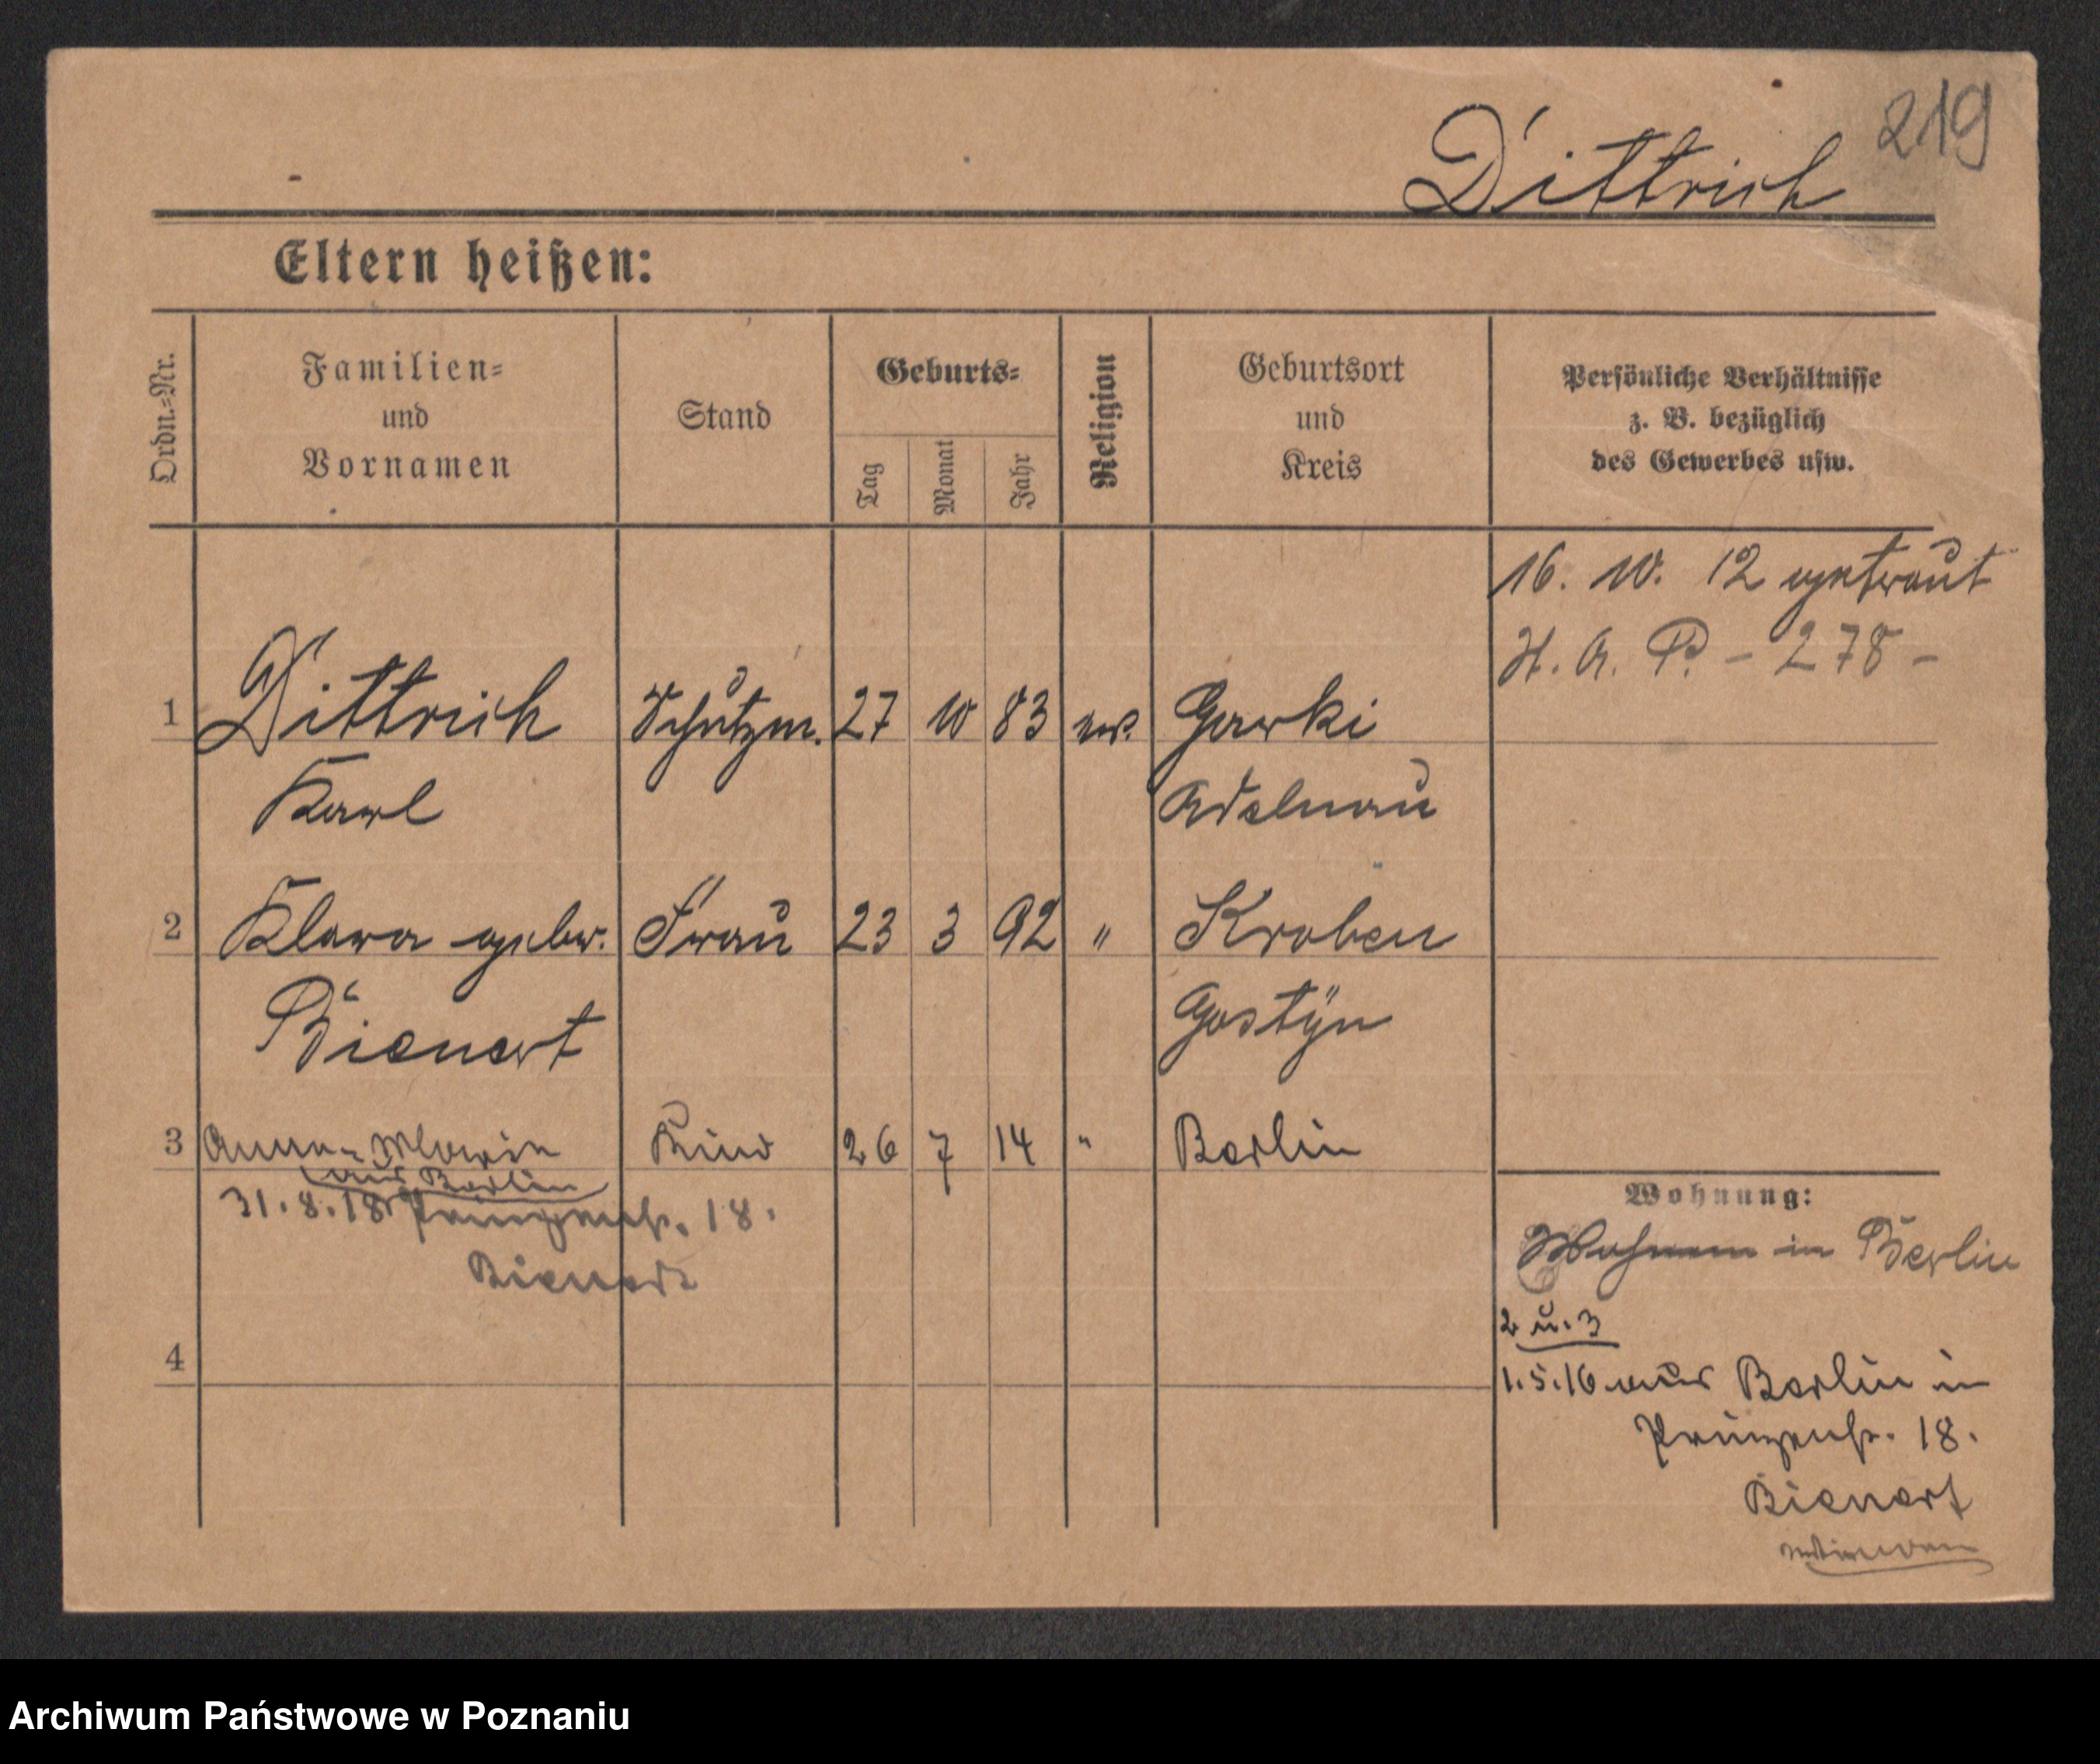 219
Dittrich
Eltern heißen:
Ordn.-Nr.
Familien-
und
Vornamen
Stand
Geburts-
Tag
Monat
Jahr
Religion
Geburtsort
und
Kreis
Persönliche Verhältnisse
z. B. bezüglich
des Gewerbes usw.
16. 10. 12 getraut
H. A. P. - 278 -
1 Dittrich Schutzm. 27 10 83 ev. Gorki
Karl Adelnau
2 Klara gebor. Frau 23 3 92 " Kroben
Bienert Gostÿn
3 Anna-Maria Kind 26 7 14 " Berlin
aus Berlin
31.8.18 Prinzenstr. 18.
Bienert
4
Wohnung:
Wohnen in Berlin
2 u. 3
1.5.16 aus Berlin in
Prinzenstr. 18.
Bienert
Archiwum Państwowe w Poznaniu